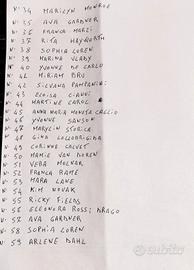 N° 34 MARILYN MONROE
N° 35 AVA GARDNER
N° 36 FRANCA MARZI
N° 37 RITA HAYWORTH
N° 38 SOPHIA LOREN
N° 39 MARINA VLADY
N° 40 YVONNE DE CARLO
N° 41 MIRIAM BRU
N° 42 SILVANA PAMPANINI
N° 43 ELOISA CIANNI
N° 44 MARTINE CAROL
N° 45 ANNA MARIA MONETA CAGLIO
N° 46 YVONNE SANSON
N° 47 MARILYN
N° 48 GINA LOLLOBRIGIDA
N° 49 CORINNE CALVET
N° 50 MAMIE VAN DOREN
N° 51 VERA MOLNAR
N° 52 FRANCA RAME
N° 53 MARA LANE
N° 54 KIM NOVAK
N° 55 RICKY FIELDS
N° 56 ELEONORA ROSSI DRAGO
N° 57 AVA GARDNER
N° 58 SOPHIA LOREN
N° 59 ARLENE DAHL
subito